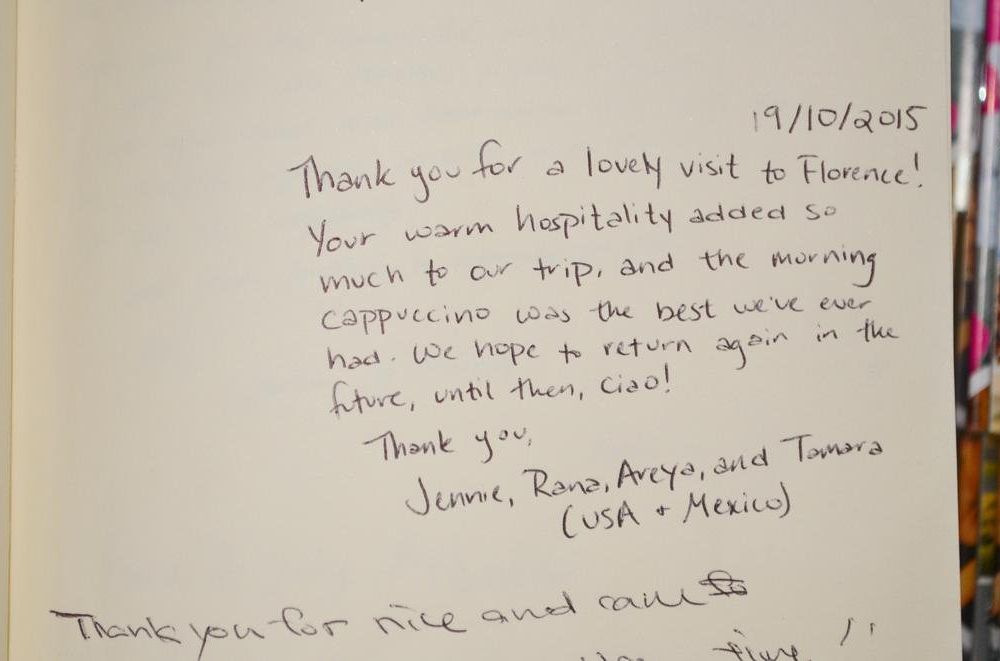 19/10/2015
Thank you for a lovely visit to Florence!
Your warm hospitality added so
much to our trip, and the morning
cappuccino was the best we've ever
had. We hope to return again in the
future, until then, ciao!
Thank you,
Jennie, Rana, Areya, and Tamara
(USA + Mexico)
Thank you for nice and
time !!